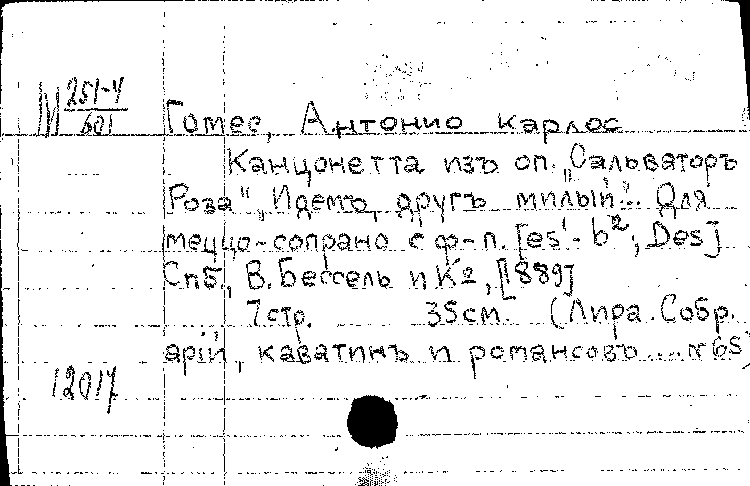 М 251-4
601
Гомес, Антонио Карлос
Канцонетта изъ оп. „Сальваторъ
Роза" „Идемъ, другъ милый". Для
меццо-сопрано с ф-п. [es¹-b², Des]
Спб., В. Бессель и К⁰, [1889]
7 стр. 35 см. (Лира. Собр.
арій, каватинъ и романсовъ ... № 65)
12017